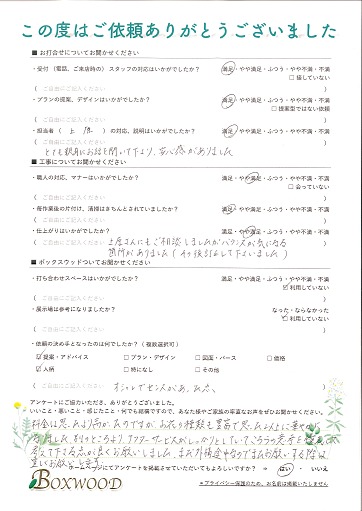 この度はご依頼ありがとうございました
■ お打合せについてお聞かせください
・受付（電話、ご来店時の）スタッフの対応はいかがでしたか？ 満足・やや満足・ふつう・やや不満・不満
□ 接していない
（ ご自由にご記入ください ）
・プランの提案、デザインはいかがでしたか？ 満足・やや満足・ふつう・やや不満・不満
□ 提案型ではない依頼
（ ご自由にご記入ください ）
・担当者（ 上 ）の対応、説明はいかがでしたか？ 満足・やや満足・ふつう・やや不満・不満
とても親身にお話を聞いて下さり、安心感がありました
■ 工事についてお聞かせください
・職人の対応、マナーはいかがでしたか？ 満足・やや満足・ふつう・やや不満・不満
□ 会っていない
（ ご自由にご記入ください ）
・毎作業後の片付け、清掃はきちんとされていましたか？ 満足・やや満足・ふつう・やや不満・不満
（ ご自由にご記入ください ）
・仕上がりはいかがでしたか？ 満足・やや満足・ふつう・やや不満・不満
さんにもご相談しましたがバランスが気になる
箇所がありました（その後対応して下さいました）
■ ボックスウッドついてお聞かせください
・打ち合わせスペースはいかがでしたか？ 満足・やや満足・ふつう・やや不満・不満
☑ 利用していない
（ ご自由にご記入ください ）
・展示場は参考になりましたか？ なった・ならなかった
☑ 利用していない
（ ご自由にご記入ください ）
・依頼の決め手となったのは何でしたか？（複数選択可）
☑ 提案・アドバイス □ プラン・デザイン □ 図面・パース □ 価格
☑ 人柄 □ 特になし □ その他
センスがあった
アンケートにご協力いただき、ありがとうございました。
いいこと・悪いこと・感じたこと・何でも結構ですので、あなた様やご家族の率直なお声をぜひお聞かせください。
料金は思ったより高かったのですが、お花の種類も豊富で思った以上に華やかに
なりました。アフターサービスがしっかりとしている
お願いしました。また外構途中なのでまたお願いする際は
お願いします。
ホームページにてアンケートを掲載させていただいてもよろしいですか？ ⇒ はい ・ いいえ
BOXWOOD
＊プライバシー保護のため、お名前は掲載いたしません